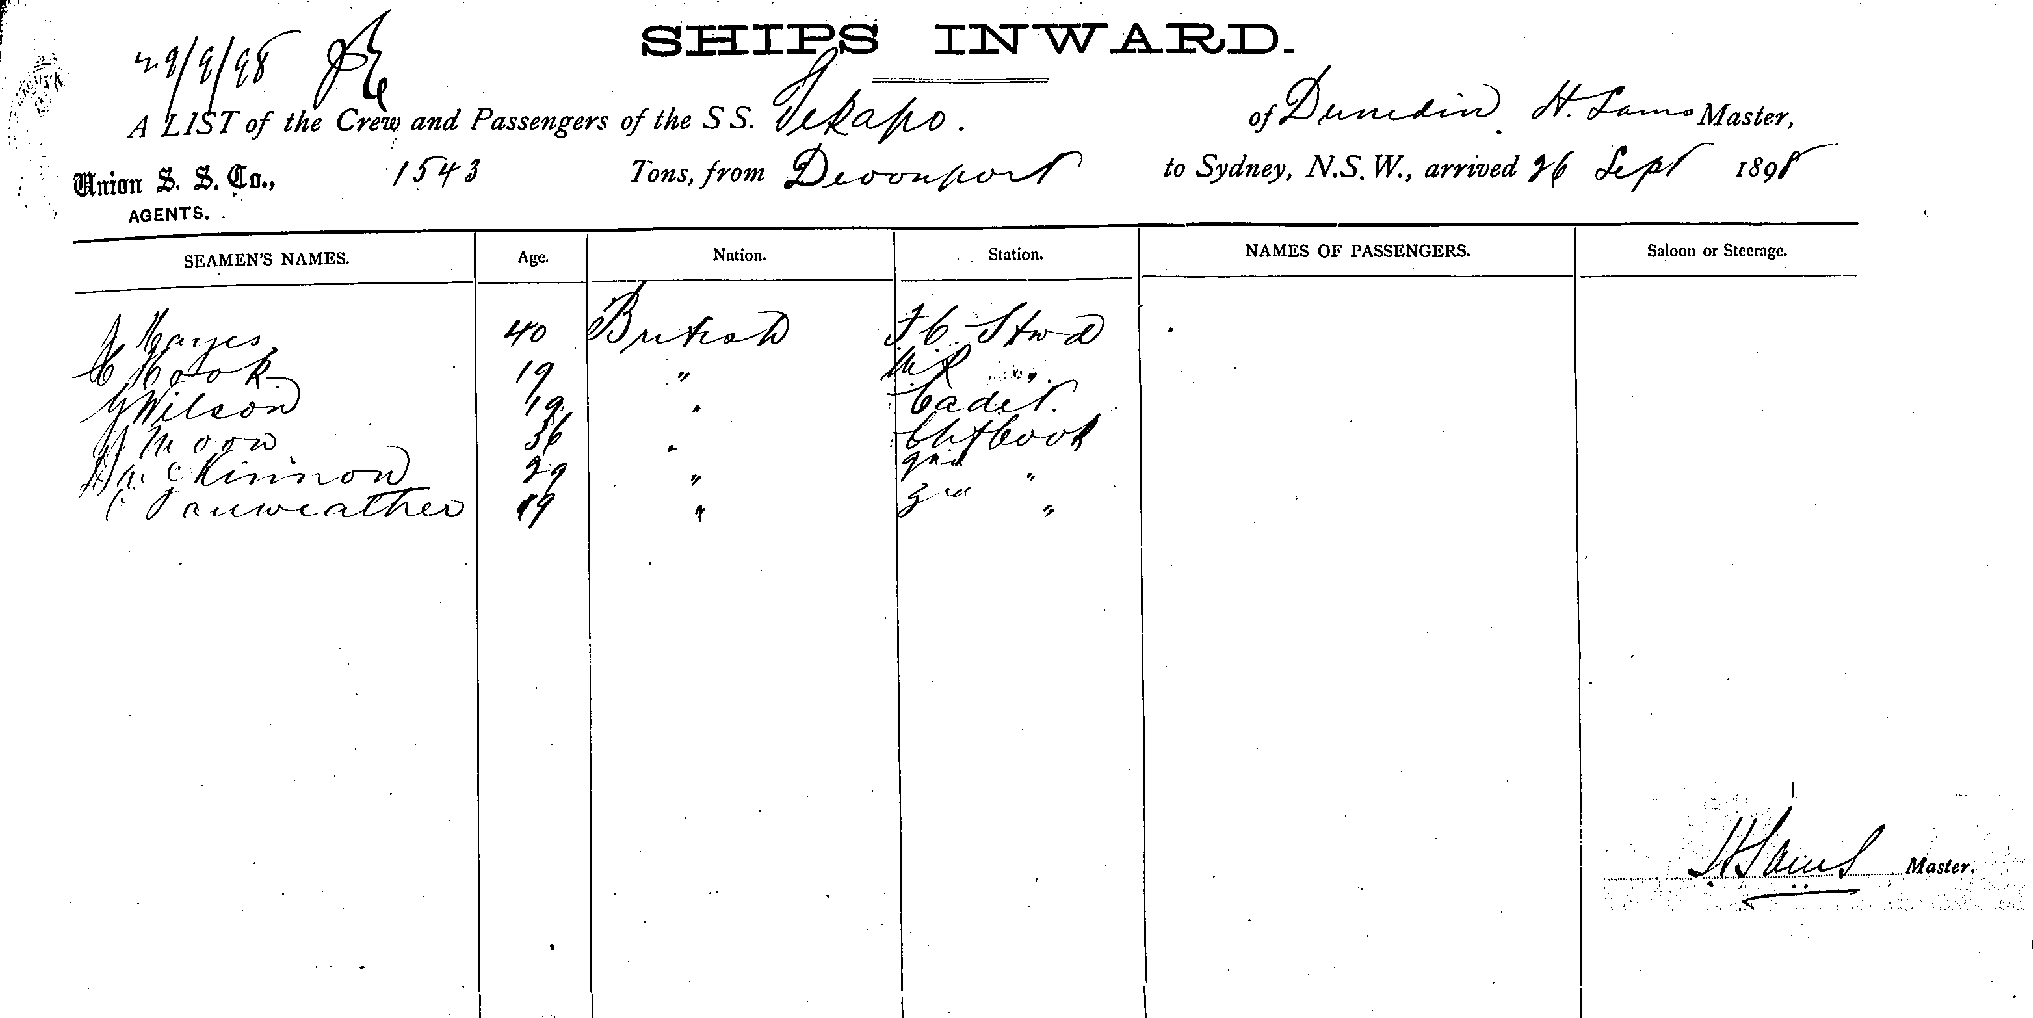 SHIPS INWARD.
29/9/98
A LIST of the Crew and Passengers of the SS. Tekapo. of Dunedin H. Sams Master,
Union S. S. Co., 1543 Tons, from Devonport to Sydney, N.S.W., arrived 26 Sept 1898
AGENTS.
SEAMEN'S NAMES. Age. Nation. Station. NAMES OF PASSENGERS. Saloon or Steerage.
Hayes 40 British F.C. Stwd
Hook 19 " M.R "
Wilson 19 " Cadet.
Moon 36 " Chf Cook
McKinnon 29 " 2nd "
19 " 3rd "
H Sams Master.